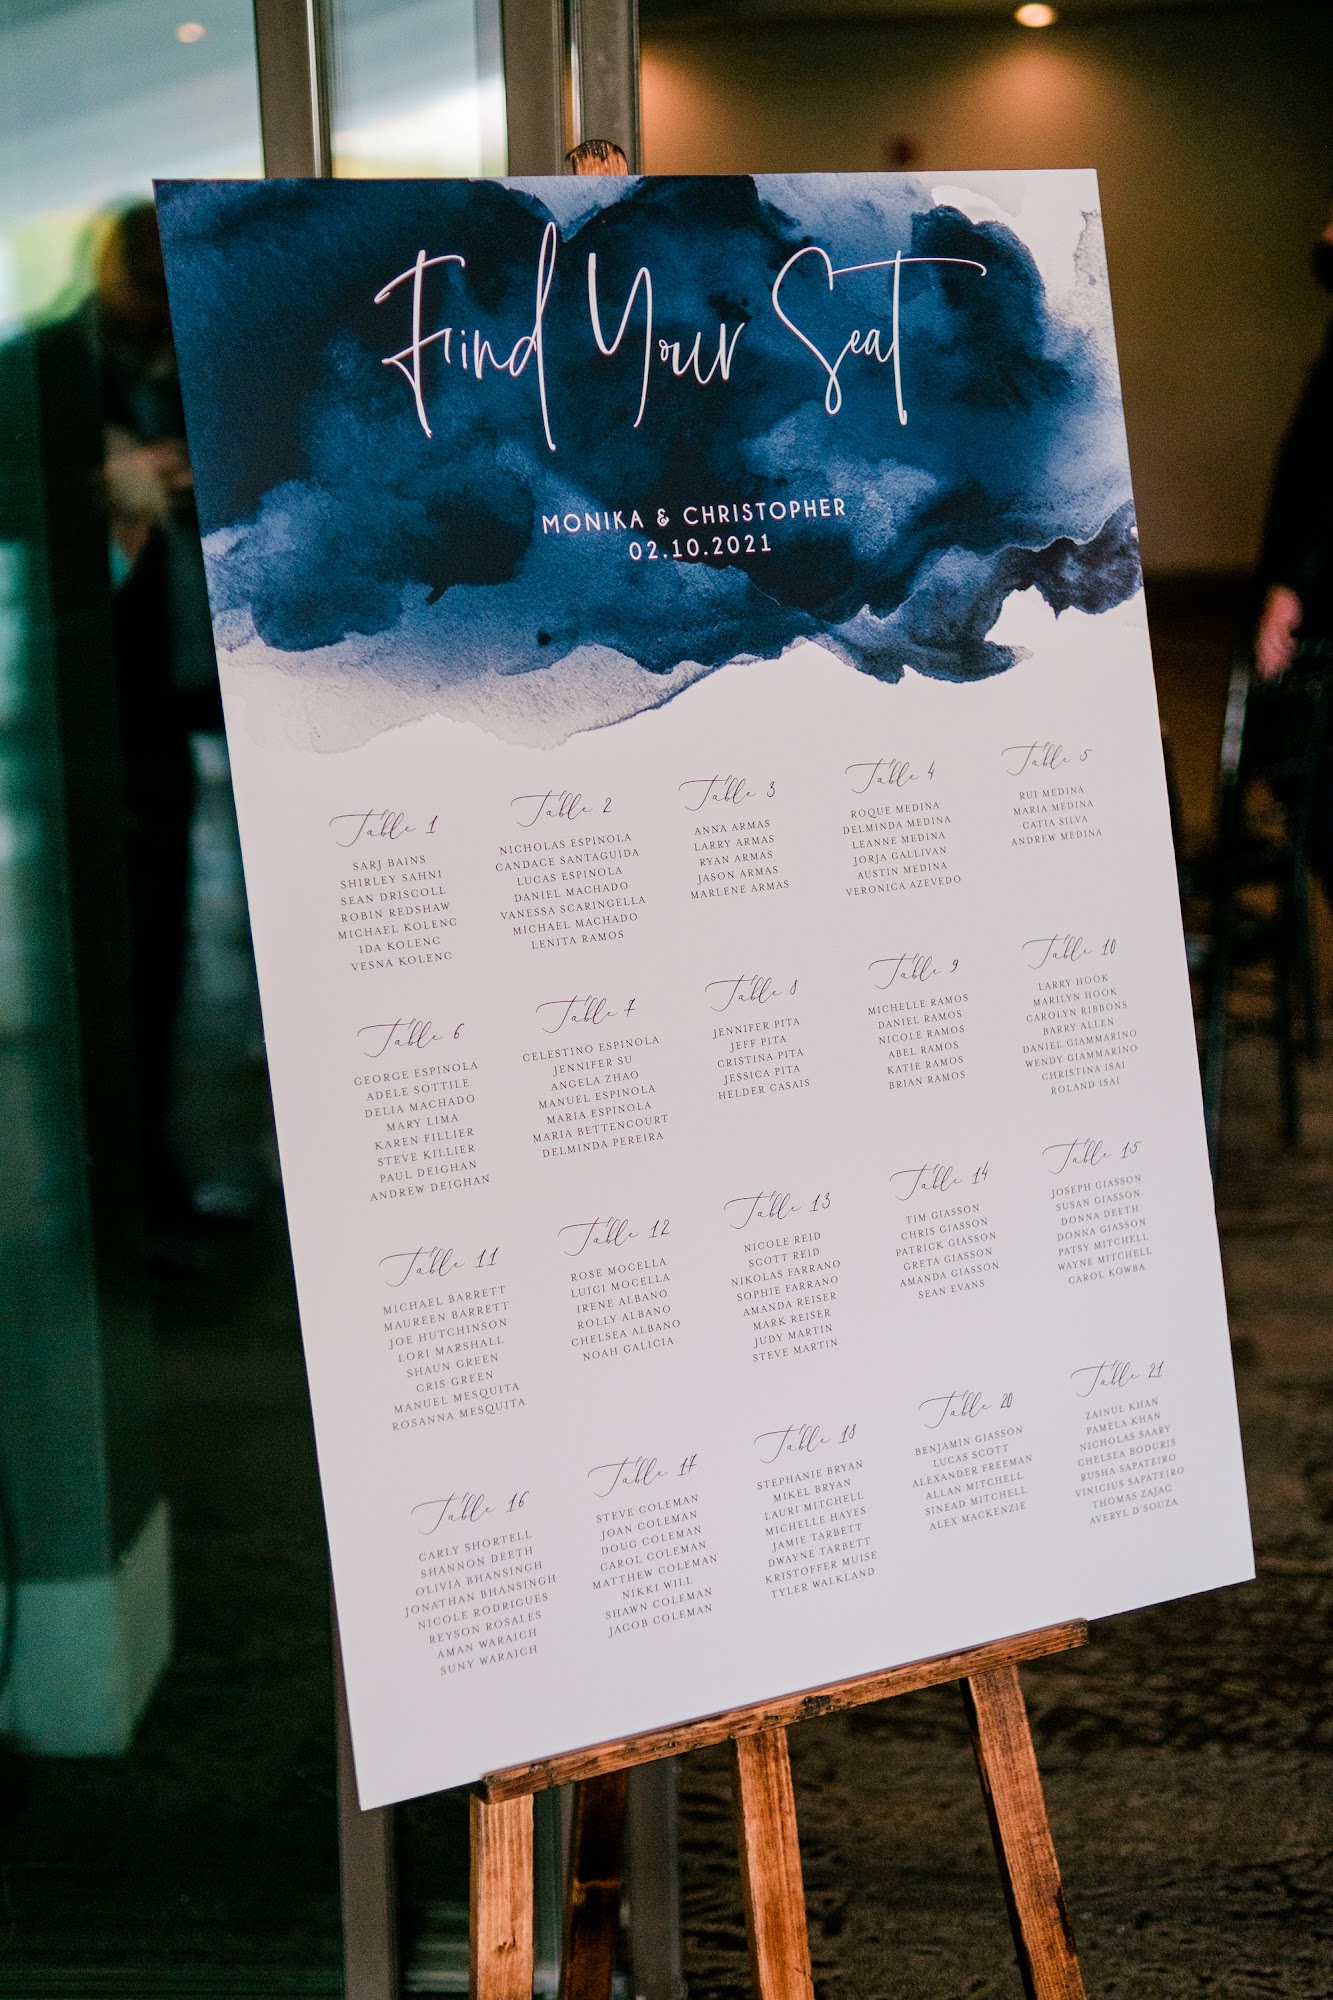 Find Your Seat
MONIKA & CHRISTOPHER
02.10.2021
Table 1
SARJ BAINS
SHIRLEY SAHNI
SEAN DRISCOLL
ROBIN REDSHAW
MICHAEL KOLENC
IDA KOLENC
VESNA KOLENC
Table 2
NICHOLAS ESPINOLA
CANDACE SANTAGUIDA
LUCAS ESPINOLA
DANIEL MACHADO
VANESSA SCARINGELLA
MICHAEL MACHADO
LENITA RAMOS
Table 3
ANNA ARMAS
LARRY ARMAS
RYAN ARMAS
JASON ARMAS
MARLENE ARMAS
Table 4
ROQUE MEDINA
DELMINDA MEDINA
LEANNE MEDINA
JORJA GALLIVAN
AUSTIN MEDINA
VERONICA AZEVEDO
Table 5
RUI MEDINA
MARIA MEDINA
CATIA SILVA
ANDREW MEDINA
Table 6
GEORGE ESPINOLA
ADELE SOTTILE
DELIA MACHADO
MARY LIMA
KAREN FILLIER
STEVE KILLIER
PAUL DEIGHAN
ANDREW DEIGHAN
Table 7
CELESTINO ESPINOLA
JENNIFER SU
ANGELA ZHAO
MANUEL ESPINOLA
MARIA ESPINOLA
MARIA BETTENCOURT
DELMINDA PEREIRA
Table 8
JENNIFER PITA
JEFF PITA
CRISTINA PITA
JESSICA PITA
HELDER CASAIS
Table 9
MICHELLE RAMOS
DANIEL RAMOS
NICOLE RAMOS
ABEL RAMOS
KATIE RAMOS
BRIAN RAMOS
Table 10
LARRY HOOK
MARILYN HOOK
CAROLYN RIBBONS
BARRY ALLEN
DANIEL GIAMMARINO
WENDY GIAMMARINO
CHRISTINA ISAI
ROLAND ISAI
Table 11
MICHAEL BARRETT
MAUREEN BARRETT
JOE HUTCHINSON
LORI MARSHALL
SHAUN GREEN
CRIS GREEN
MANUEL MESQUITA
ROSANNA MESQUITA
Table 12
ROSE MOCELLA
LUIGI MOCELLA
IRENE ALBANO
ROLLY ALBANO
CHELSEA ALBANO
NOAH GALICIA
Table 13
NICOLE REID
SCOTT REID
NIKOLAS FARRANO
SOPHIE FARRANO
AMANDA REISER
MARK REISER
JUDY MARTIN
STEVE MARTIN
Table 14
TIM GIASSON
CHRIS GIASSON
PATRICK GIASSON
GRETA GIASSON
AMANDA GIASSON
SEAN EVANS
Table 15
JOSEPH GIASSON
SUSAN GIASSON
DONNA DEETH
DONNA GIASSON
PATSY MITCHELL
WAYNE MITCHELL
CAROL KOWBA
Table 16
CARLY SHORTELL
SHANNON DEETH
OLIVIA BHANSINGH
JONATHAN BHANSINGH
NICOLE RODRIGUES
REYSON ROSALES
AMAN WARAICH
SUNY WARAICH
Table 17
STEVE COLEMAN
JOAN COLEMAN
DOUG COLEMAN
CAROL COLEMAN
MATTHEW COLEMAN
NIKKI WILL
SHAWN COLEMAN
JACOB COLEMAN
Table 18
STEPHANIE BRYAN
MIKEL BRYAN
LAURI MITCHELL
MICHELLE HAYES
JAMIE TARBETT
DWAYNE TARBETT
KRISTOFFER MUISE
TYLER WALKLAND
Table 20
BENJAMIN GIASSON
LUCAS SCOTT
ALEXANDER FREEMAN
ALLAN MITCHELL
SINEAD MITCHELL
ALEX MACKENZIE
Table 21
ZAINUL KHAN
PAMELA KHAN
NICHOLAS SAARY
CHELSEA BODURIS
RUSHA SAPATEIRO
VINICIUS SAPATEIRO
THOMAS ZAJAC
AVERYL D'SOUZA